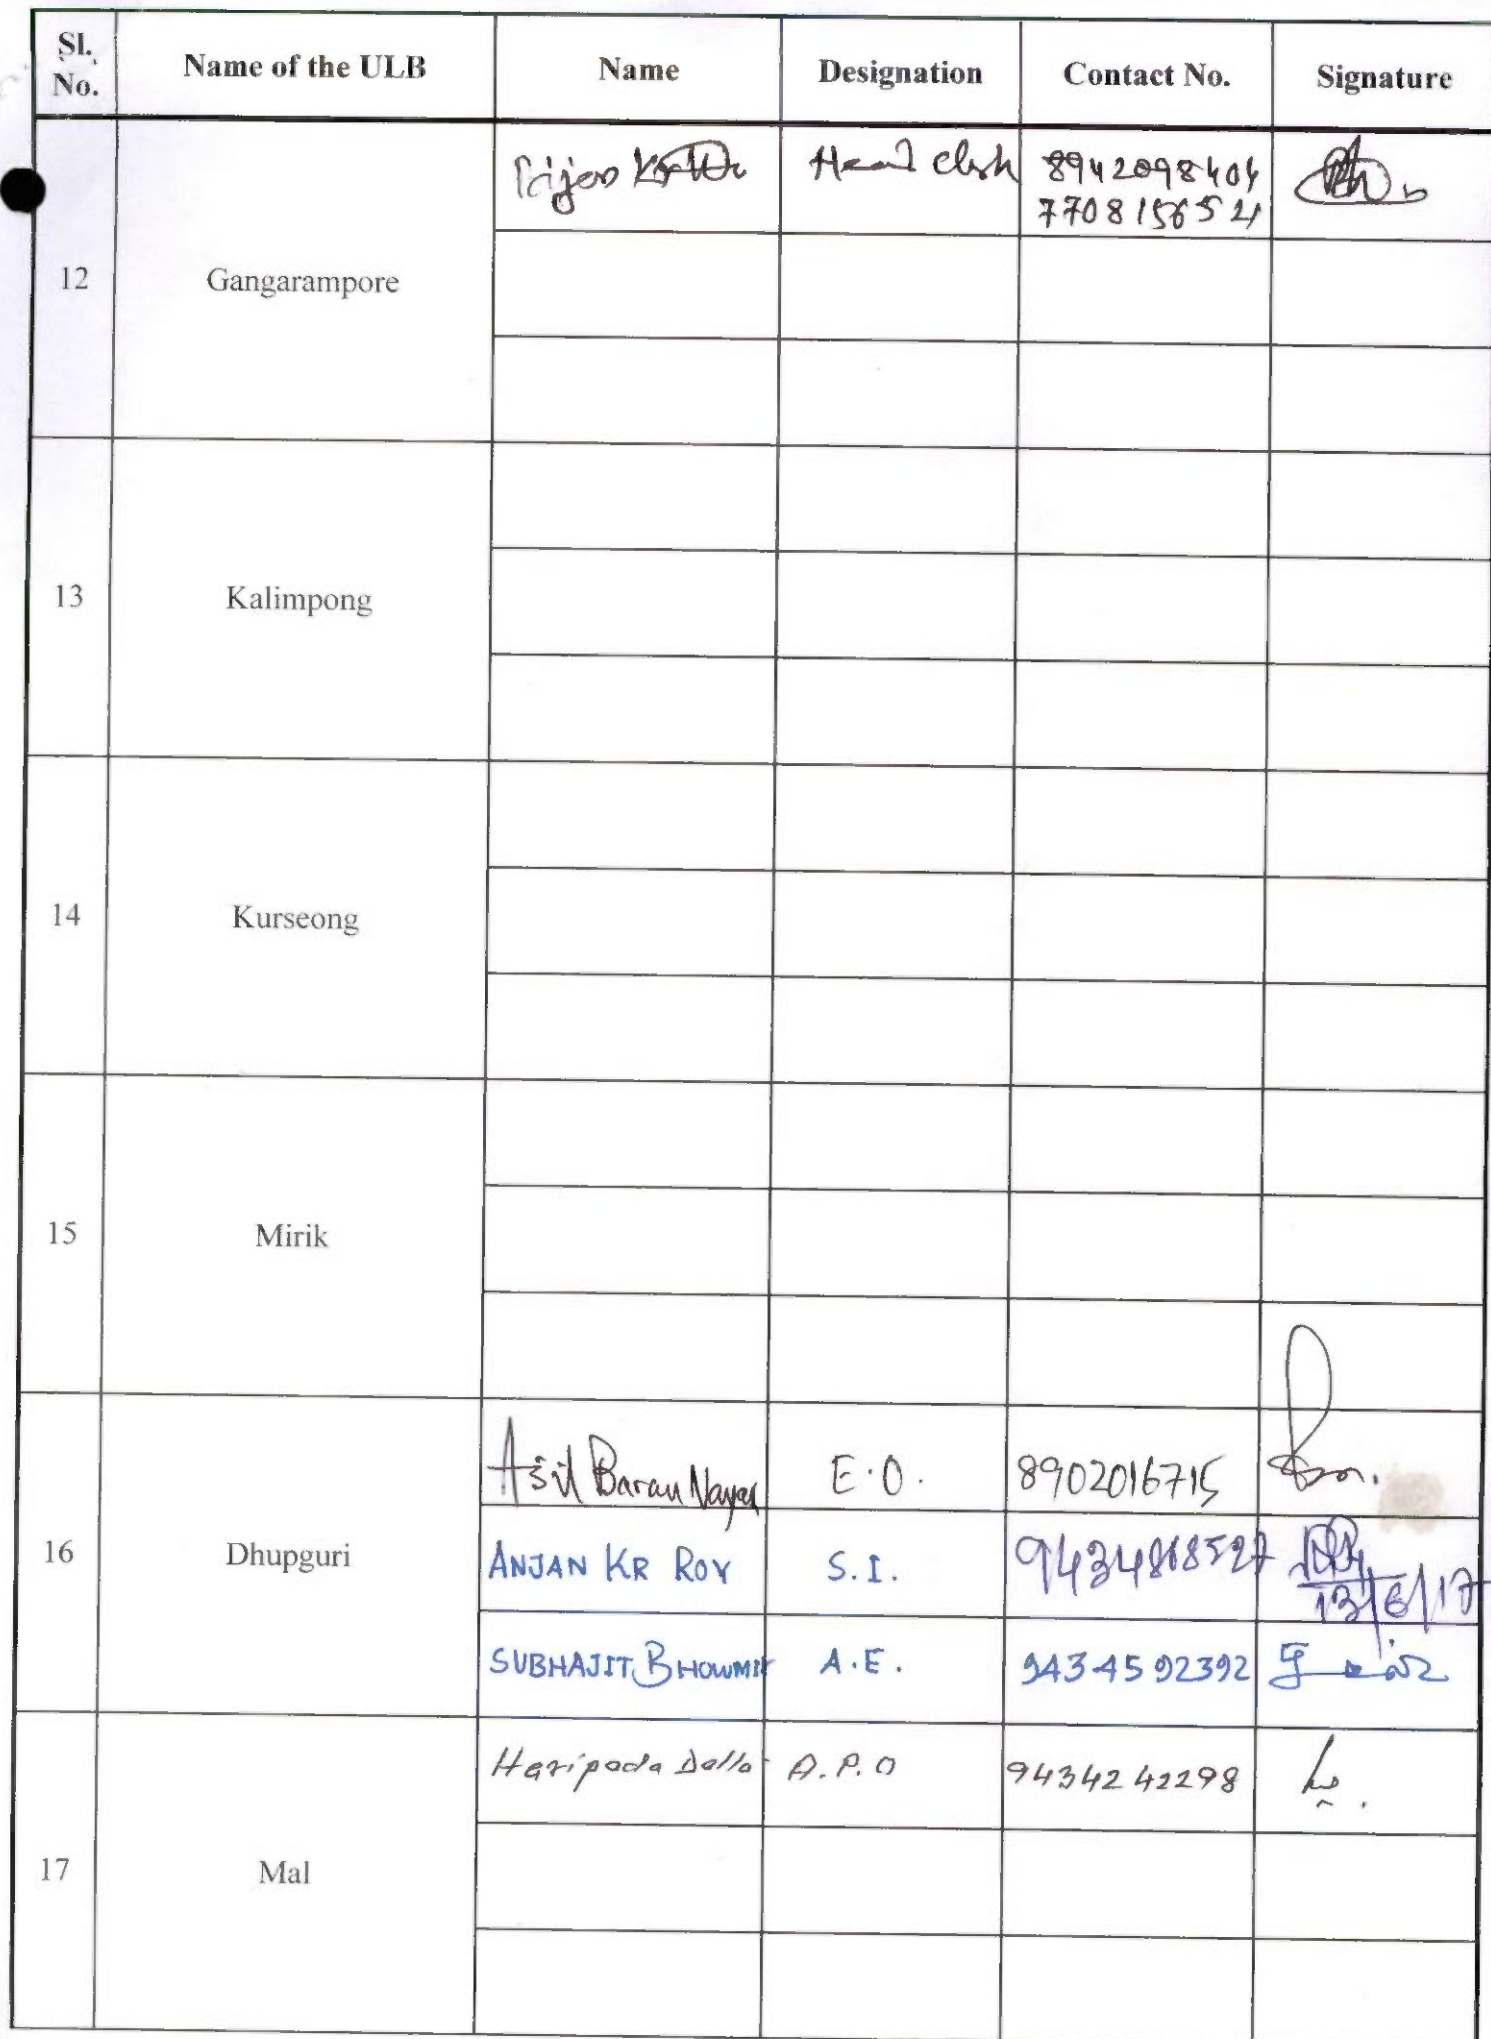 Sl. No. Name of the ULB Name Designation Contact No. Signature
12 Gangarampore Head clerk
13 Kalimpong
14 Kurseong
15 Mirik
16 Dhupguri
Asit Baran Nayak E.O. 8902016715
ANJAN KR ROY S.I.
13/6/17
SUBHAJIT BHOWMIK A.E. 9434592392
17 Mal
Haripada A.P.O 9434242298